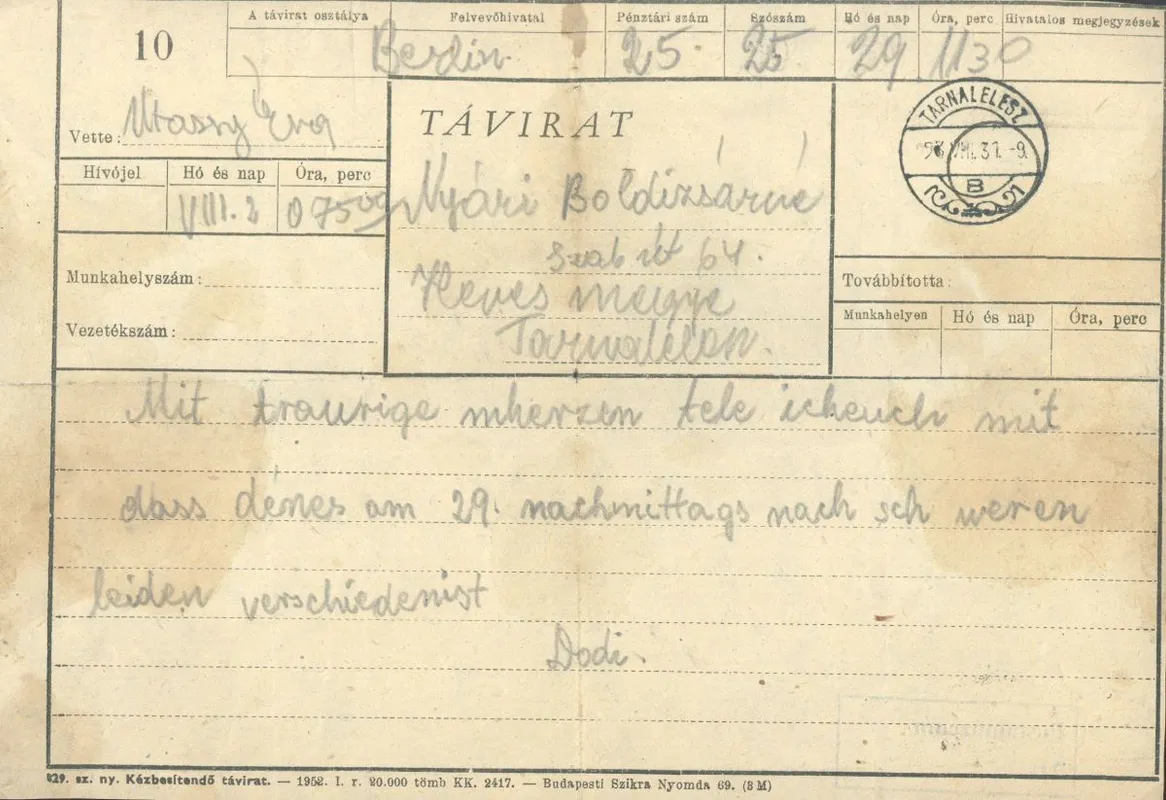 10
A távirat osztálya
Felvevőhivatal
Pénztári szám
Szószám
Hó és nap
Óra, perc
Hivatalos megjegyzések
Berlin
25.
25
29
1130
Vette: Utassy Éva
TÁVIRAT
TARNALELESZ
VIII. 31. -9.
B
Hívójel
Hó és nap
Óra, perc
VIII. 2
Nyári Boldizsárné
Szab út 64.
Heves megye
Munkahelyszám:
Vezetékszám:
Továbbította:
Munkahelyen
Hó és nap
Óra, perc
Mit traurige mherzen tele icheuch mit
dass dénes am 29. nachmittags nach sch weren
leiden verschiedenist
Dodi.
829. sz. ny. Kézbesítendő távirat. — 1952. I. r. 20.000 tömb KK. 2417. — Budapesti Szikra Nyomda 69. (8 M)